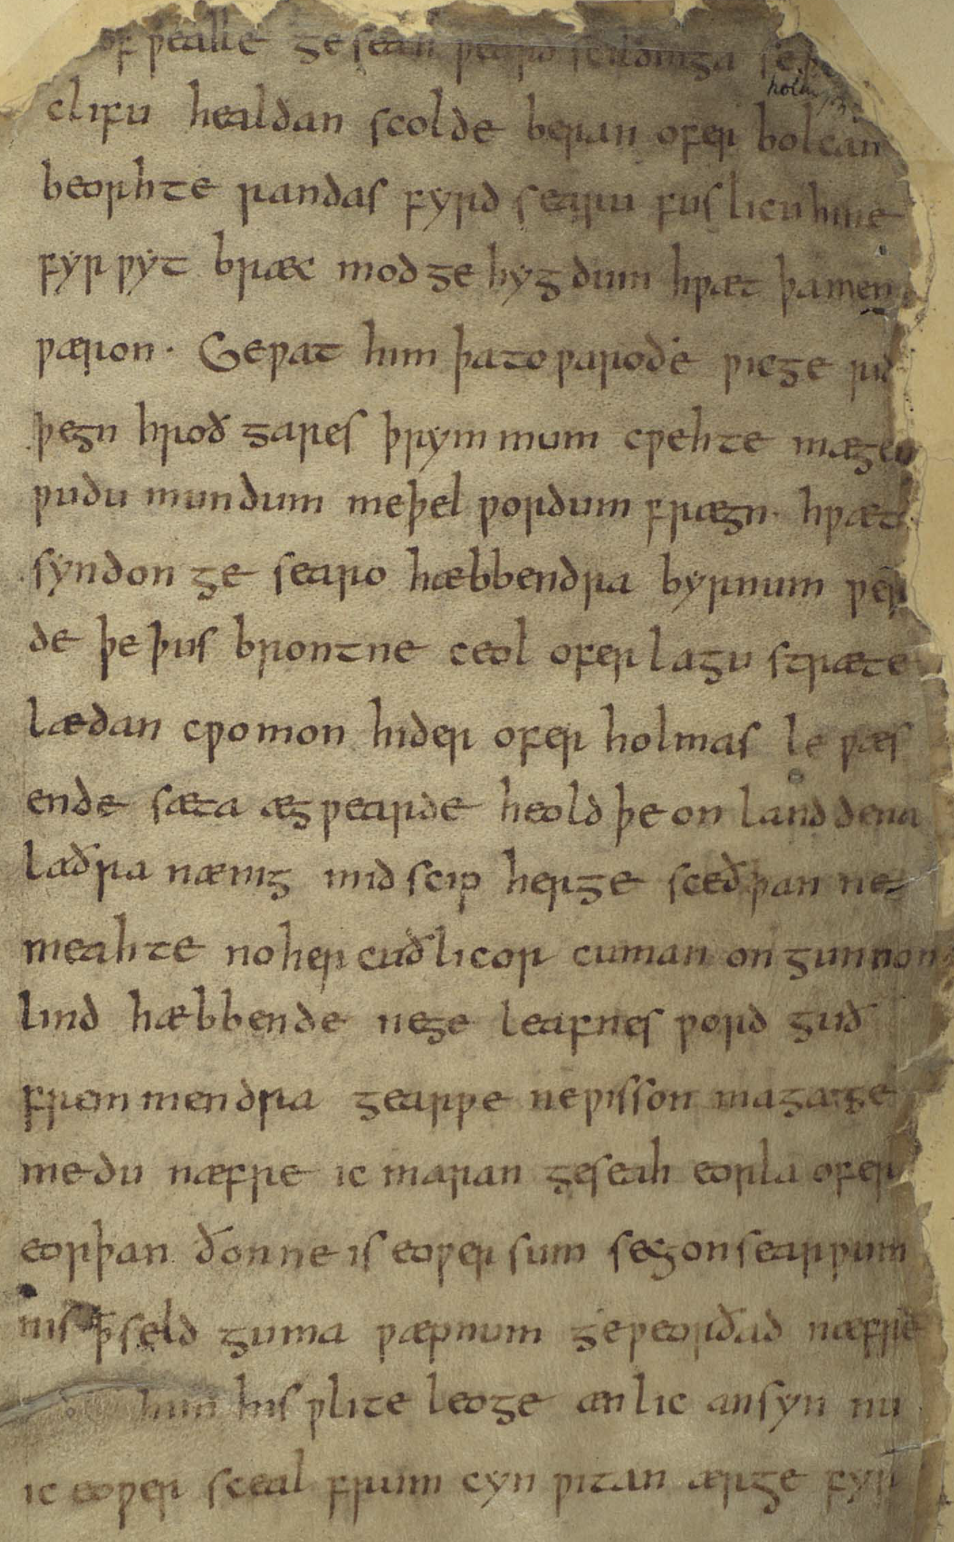 of ƿealle geseah ƿeard scildinga se þe
holm
clifu healdan scolde beran ofer bolcan
beorhte randas fyrd searu fuslicu hine
fyrƿyt bræc mod ge hyg dum hƿæt þa men
ƿæron · Geƿat him þa to ƿaroðe ƿicge rid
þegn hroð gares þrym mum cƿehte mægen
ƿudu mundum meþel ƿordum frægn · hƿæt
syndon ge searo hæbbendra byrnum ƿer
de þe þus brontne ceol ofer lagu stræte
lædan cƿomon hider ofer holmas le ƿæs
ende sæta ægƿearde heold þe on land dena
laðra nænig mid scip herge sceðþan ne
meahte no her cuðlicor cuman ongunnon
lind hæbbende ne ge leafnes ƿord guð
fremmendra gearƿe ne ƿisson maga ge
medu næfre ic maran geseah eorla ofer
eorþan ðonne is eoƿer sum secg on searƿum
nis ꝥ seld guma ƿæpnum geƿeorðad næfre
him his ƿlite leoge ænlic ansyn nu
ic eoƿer sceal frum cyn ƿitan ær ge fyr